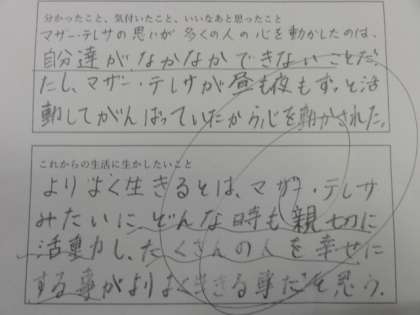 分かったこと、気付いたこと、いいなあと思ったこと
マザーテレサの思いが多くの人の心を動かしたのは、
自分達が、なかなかできないことだ
たし、マザー・テレサが昼も夜もずっと活
動してがんばっていたから心を動かされた。
これからの生活に生かしたいこと
よりよく生きるとは、マザー・テレサ
みたいに、どんな時も親切に
活動し、たくさんの人を幸せに
する事がよりよく生きる事だと思う。